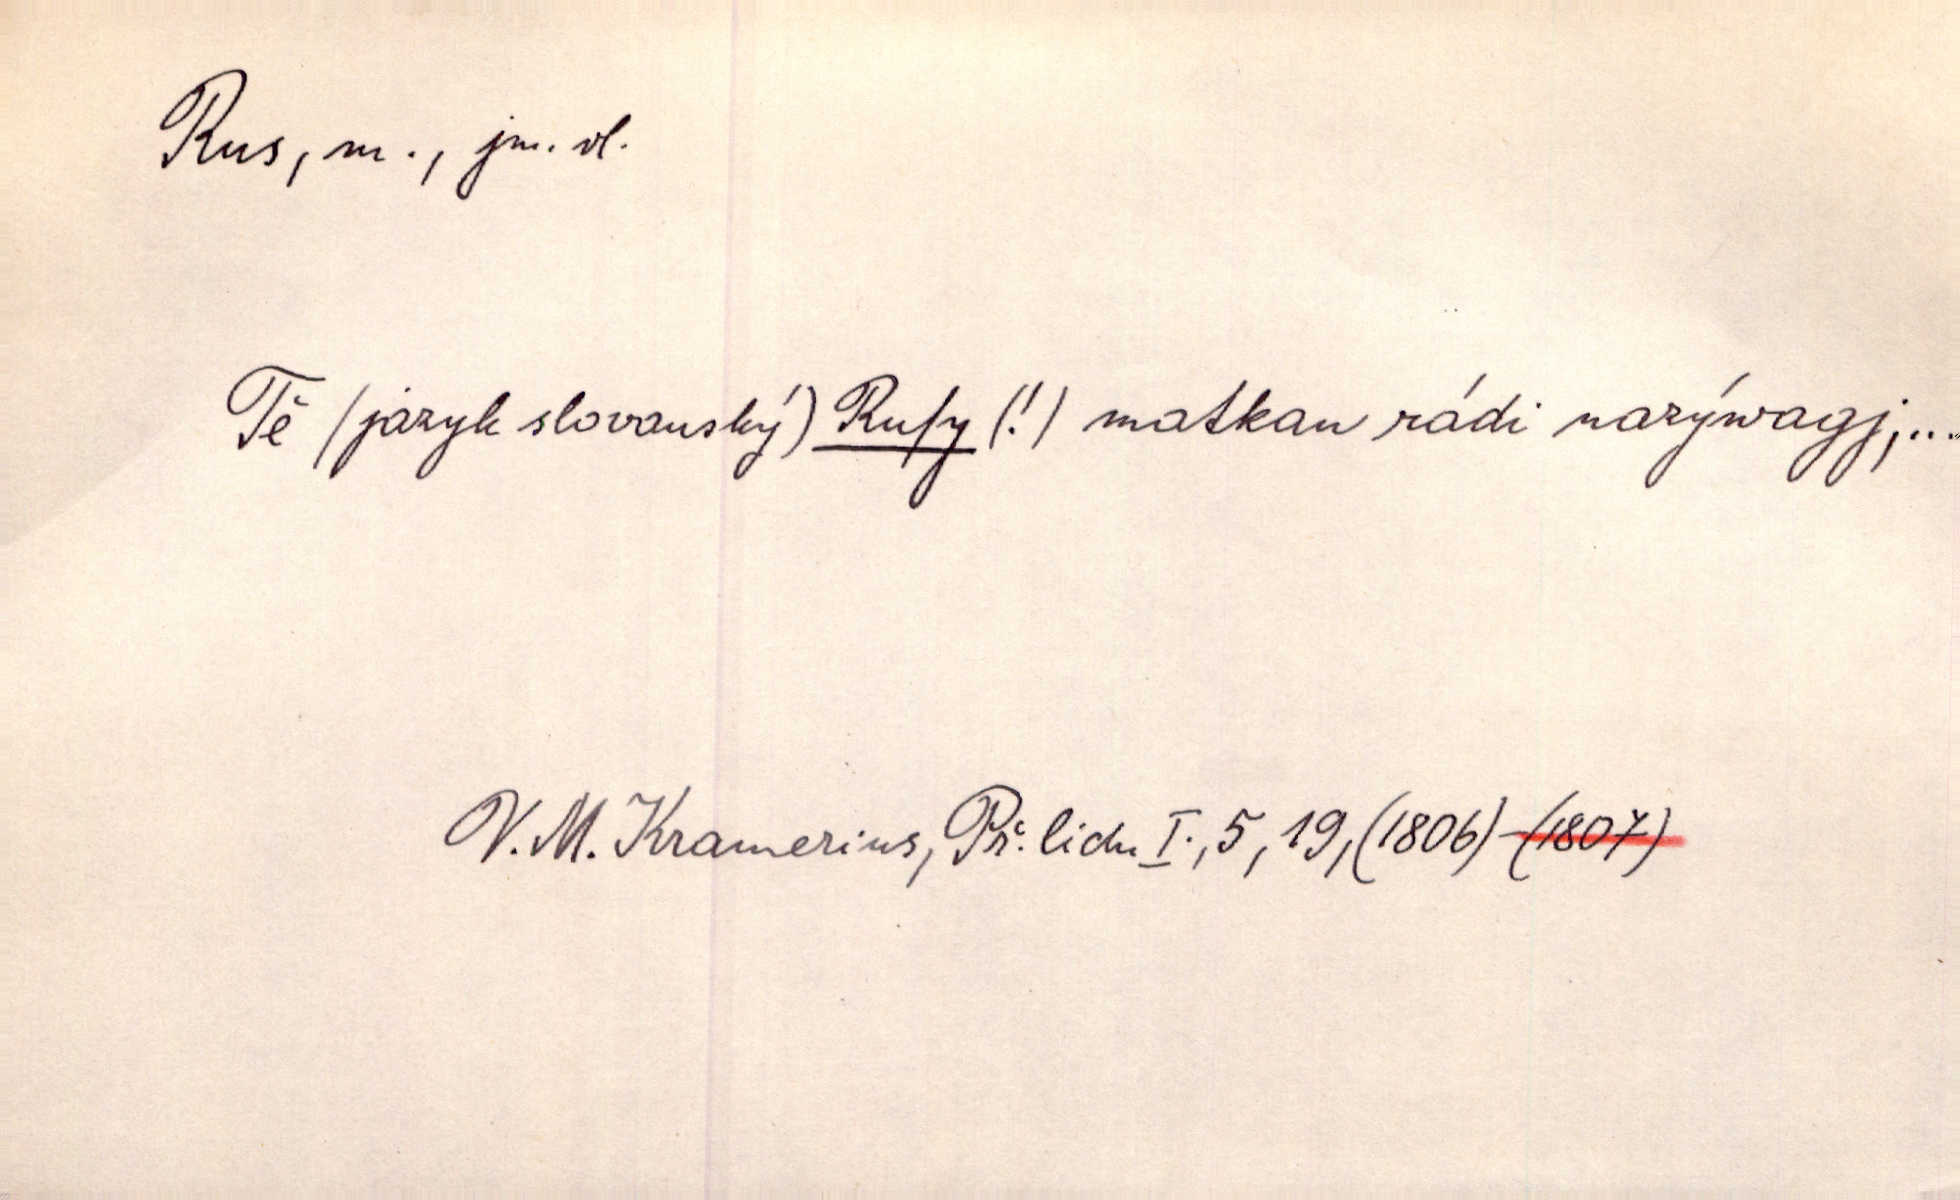 Rus, m., jm. vl.
Tě (jazyk slovanský) Ruſy (!) matkau rádi nazýwagj,...
V. M. Kramerius, Př. lidu I., 5, 19, (1806) - (1807)